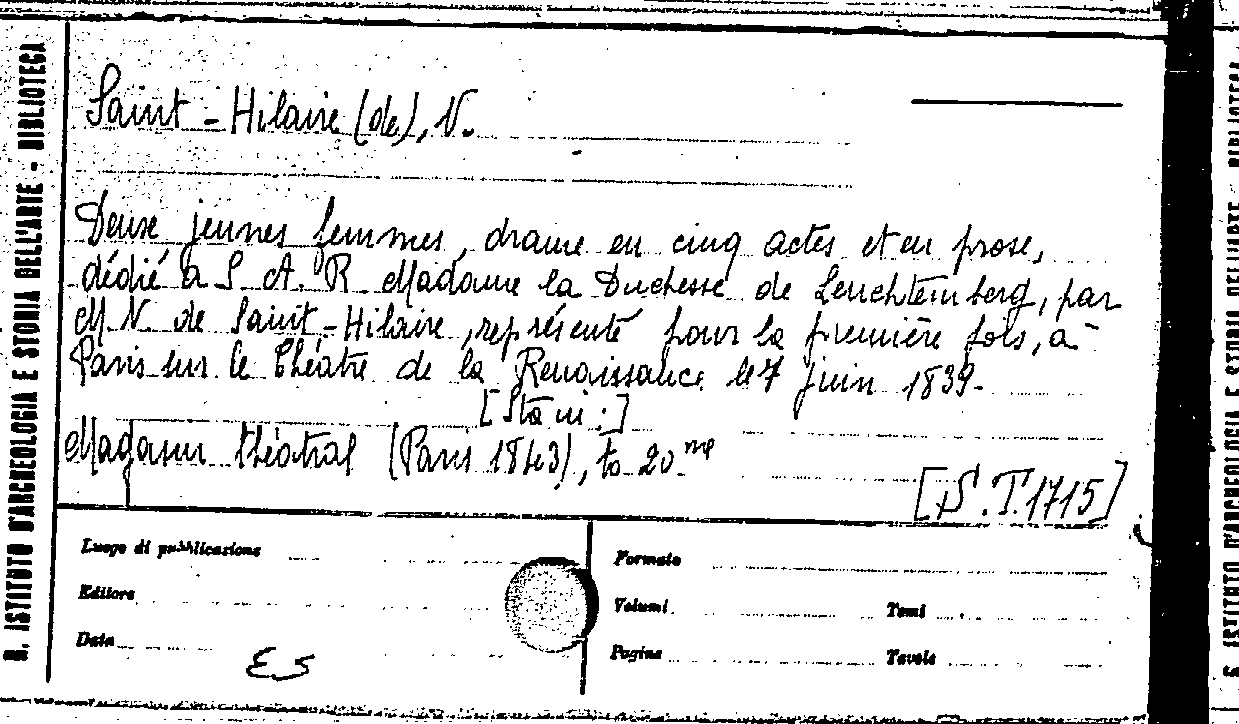 R. ISTITUTO D'ARCHEOLOGIA E STORIA DELL'ARTE - BIBLIOTECA
Saint-Hilaire (de), N.
Deux jeunes femmes, drame en cinq actes et en prose,
dédié à S. A. R. Madame la Duchesse de Leuchtemberg, par
M. N. de Saint-Hilaire, représenté pour la première fois, à
Paris sur le Théatre de la Renaissance le 7 juin 1839.
[Sta in:]
Magasin théatral (Paris 1843), to 20.me
[S.T.1715]
Luogo di pubblicazione
Editore
Data
ES
Formato
Volumi
Tomi
Pagine
Tavole